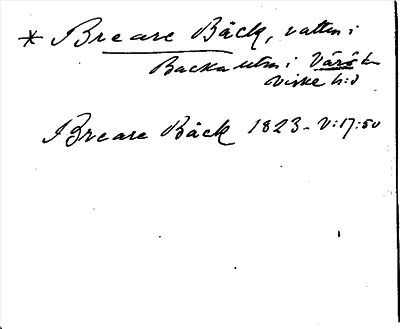 * Breare Bäck, vatten i
Backa utm i Värö sn
Viske h:d
Breare Bäck 1823 - V:17:50